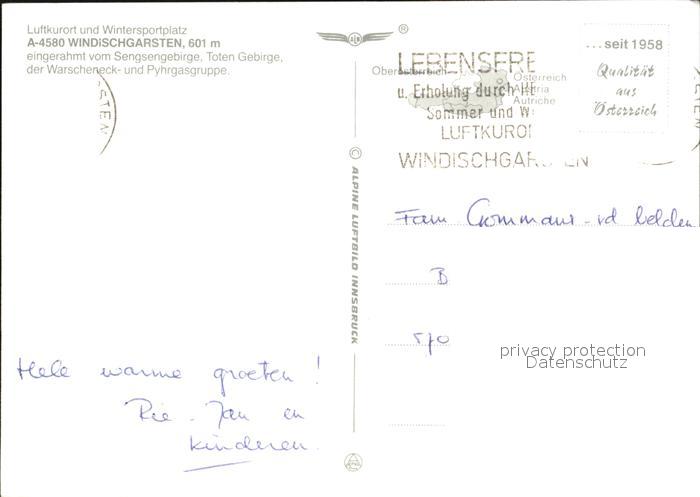 Luftkurort und Wintersportplatz
A-4580 WINDISCHGARSTEN, 601 m
eingerahmt vom Sengsengebirge, Toten Gebirge,
der Warscheneck- und Pyhrgasgruppe.
®
...seit 1958
Qualität
aus
Österreich
LEBENSFRE
Oberösterreich
Österreich
Austria
Autriche
u. Erholung durch
Sommer und W
LUFTKUROR
WINDISCHGAR EN
STEN
© ALPINE LUFTBILD INNSBRUCK
Fam - vd belden
B
privacy protection
Datenschutz
Hele warme groeten!
Rie - Jan en
kinderen.